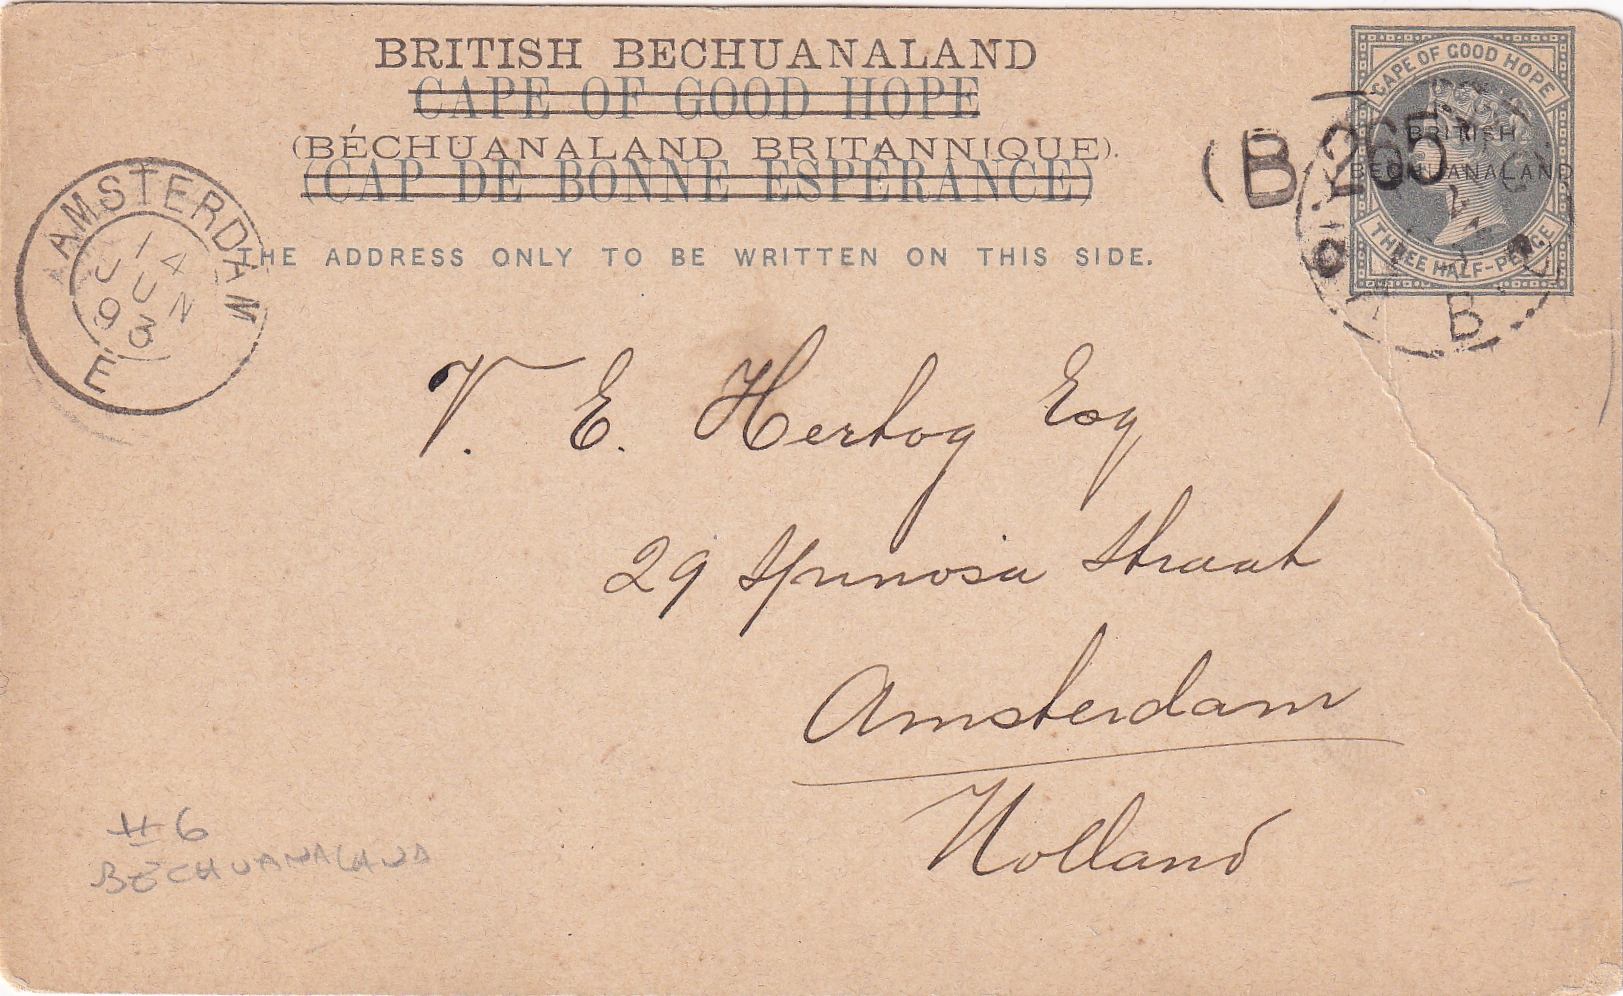 BRITISH BECHUANALAND
CAPE OF GOOD HOPE
(BÉCHUANALAND BRITANNIQUE).
(CAP DE BONNE ESPÉRANCE)
THE ADDRESS ONLY TO BE WRITTEN ON THIS SIDE.
CAPE OF GOOD HOPE
BRITISH
BECHUANALAND
THREE HALF-PENCE
(B 265
B
AMSTERDAM
14
JUN
93
E
V. E. Hertog Esq
29 Spinosa Straat
Amsterdam
Holland
#6
BECHUANALAND